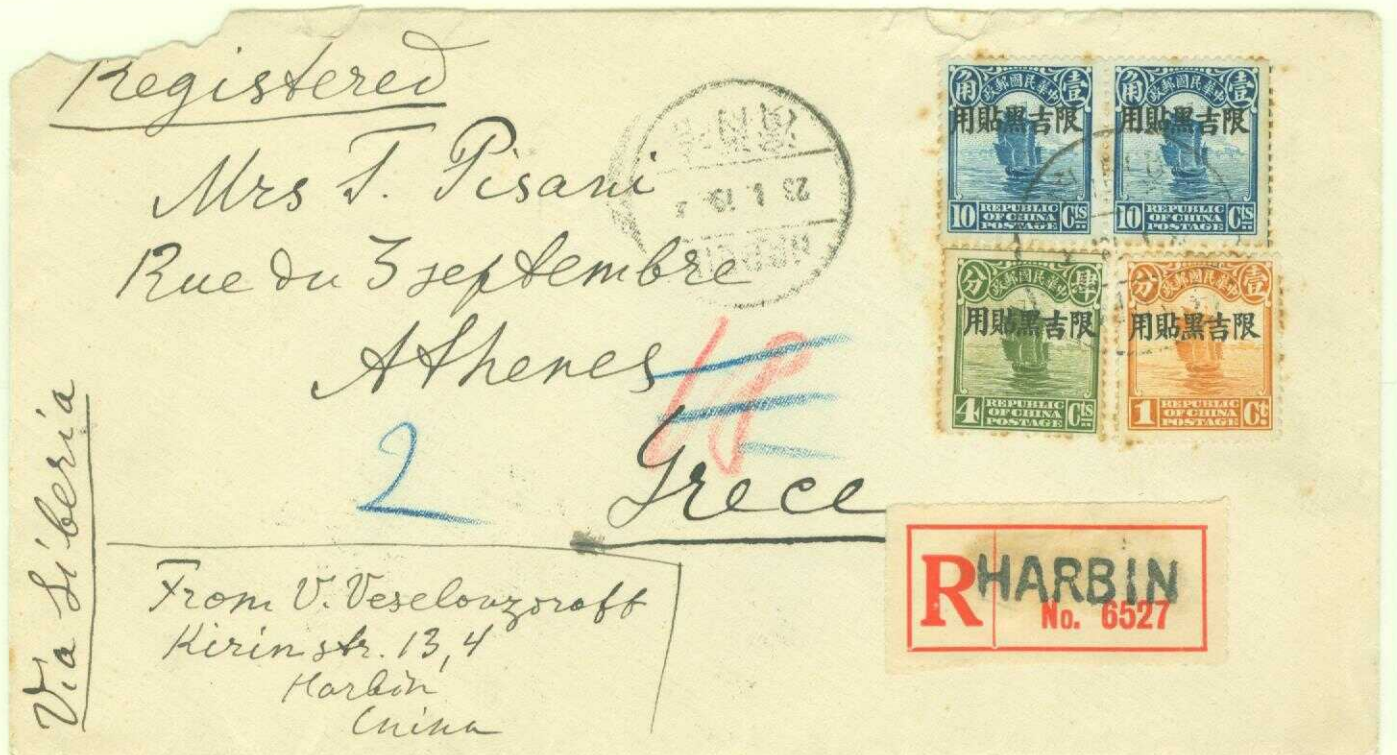 Registered
Mrs T. Pisani
Rue du 3 septembre
Athenes
Grece
Via Siberia
2
From V. Veselovzoroff
Kirin str. 13, 4
Harbin
China
角 政郵國民華中 壹
用貼黑吉限
10 REPUBLIC OF CHINA POSTAGE Cts
角 政郵國民華中 壹
用貼黑吉限
10 REPUBLIC OF CHINA POSTAGE Cts
分 政郵國民華中 肆
用貼黑吉限
4 REPUBLIC OF CHINA POSTAGE Cts
分 政郵國民華中 壹
用貼黑吉限
1 REPUBLIC OF CHINA POSTAGE Ct.
R HARBIN
No. 6527